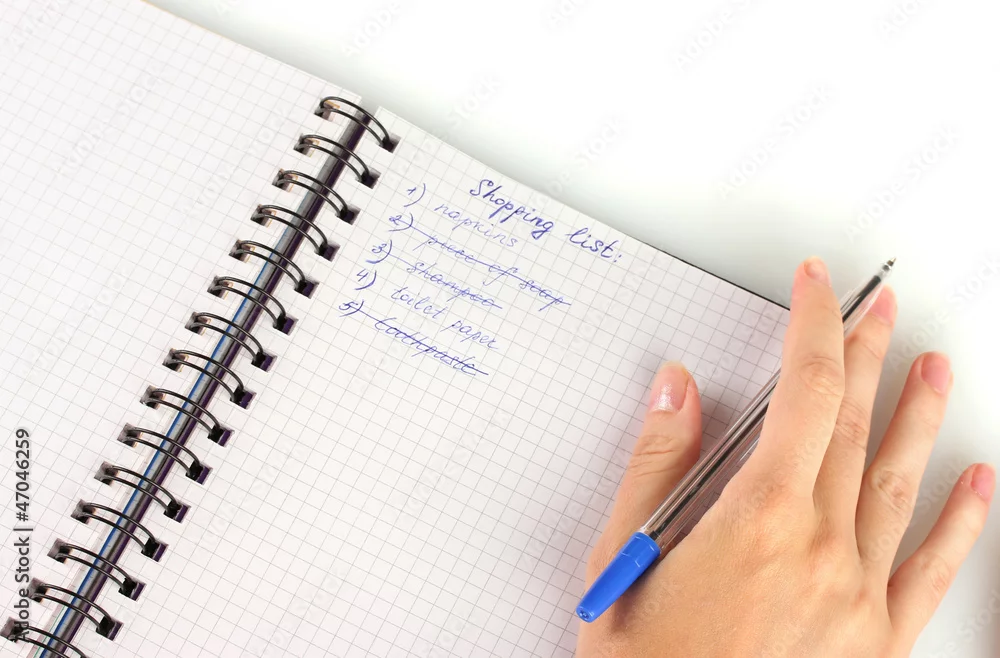 Shopping list:
1) napkins
2) piece of soap
3) shampoo
4) toilet paper
5) toothpaste
Adobe Stock | #47046259